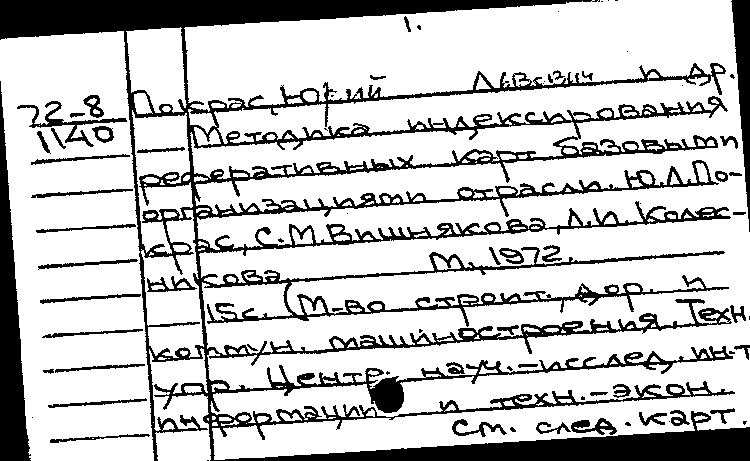 1.
72-8 Покрас, Юрий Львович и др.
1140 Методика индексирования
реферативных карт базовыми
организациями отрасли. Ю.Л.По-
крас, С.М.Вишнякова, Л.И. Колес-
никова. М., 1972.
15с. (М-во строит., дор. и
коммун. машиностроения. Техн.
упр. Центр. науч.-исслед. ин-т
информации и техн.-экон.
См. след. карт.